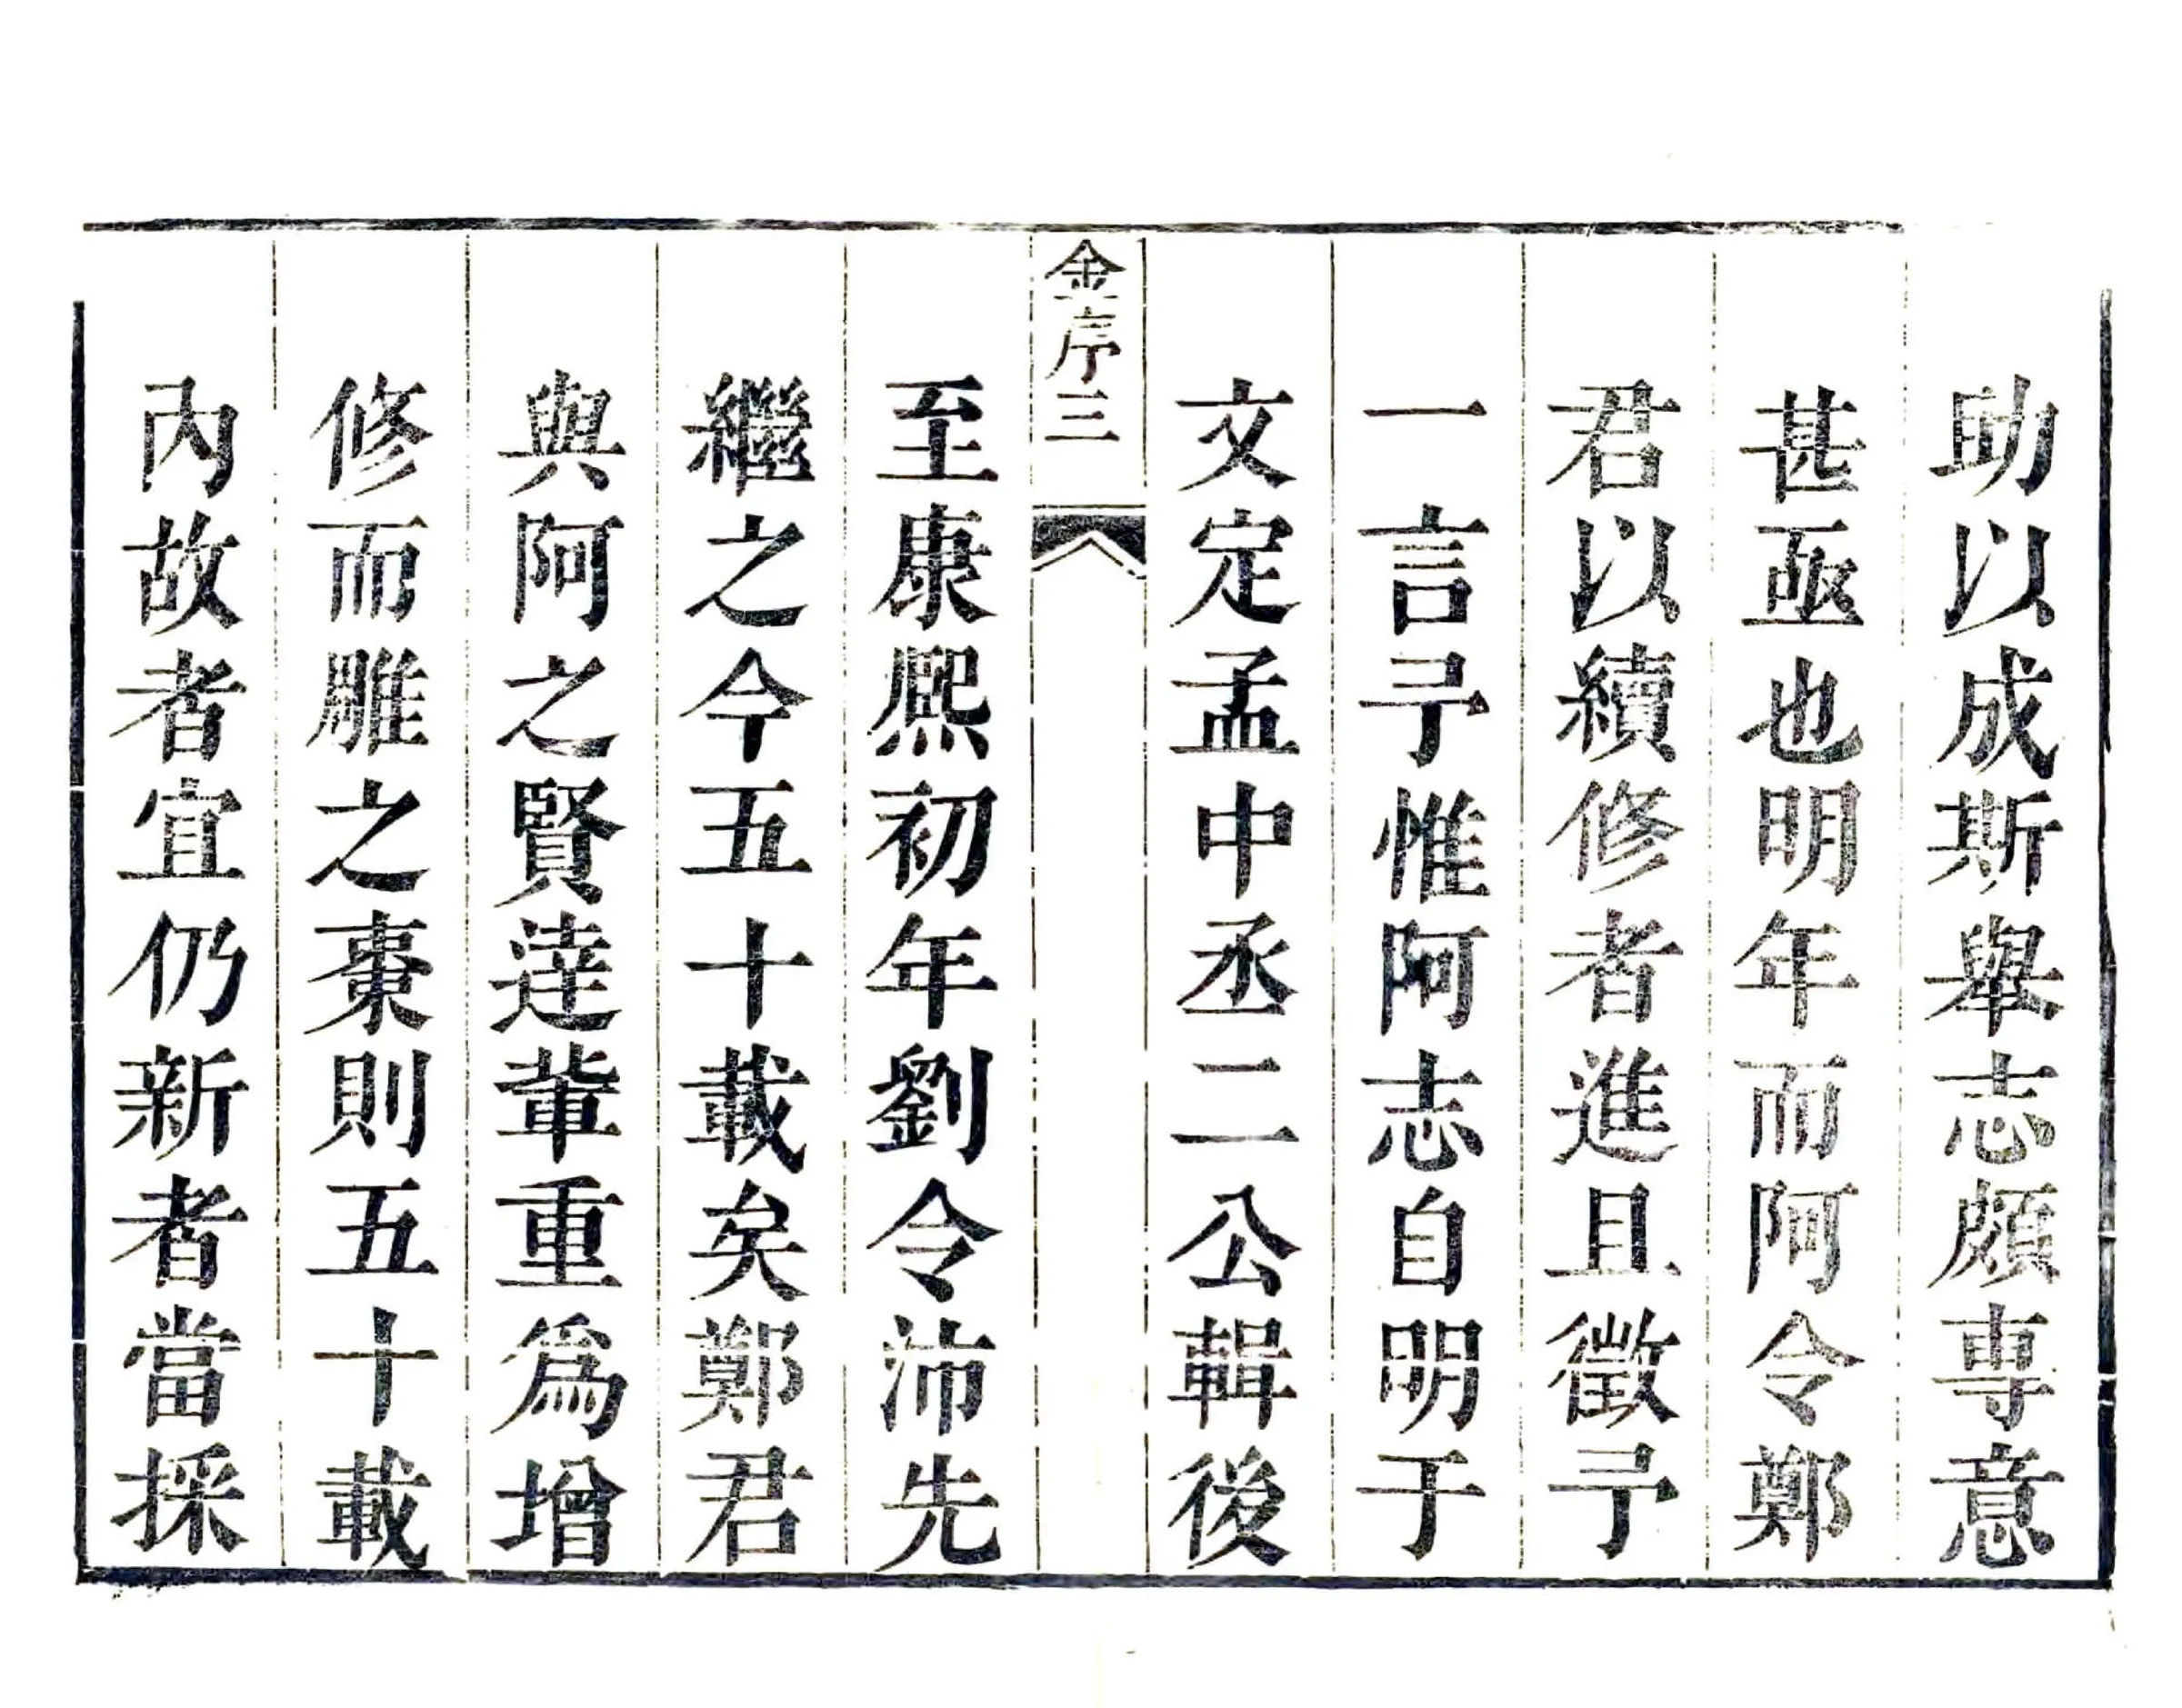 助以成斯舉志頗專意
甚亟也明年而阿令鄭
君以續修者進且徵予
一言予惟阿志自明于
文定孟中丞二公輯後
金序三
至康熙初年劉令沛先
繼之今五十載矣鄭君
與阿之賢達輩重為增
修而雕之棗則五十載
內故者宜仍新者當採